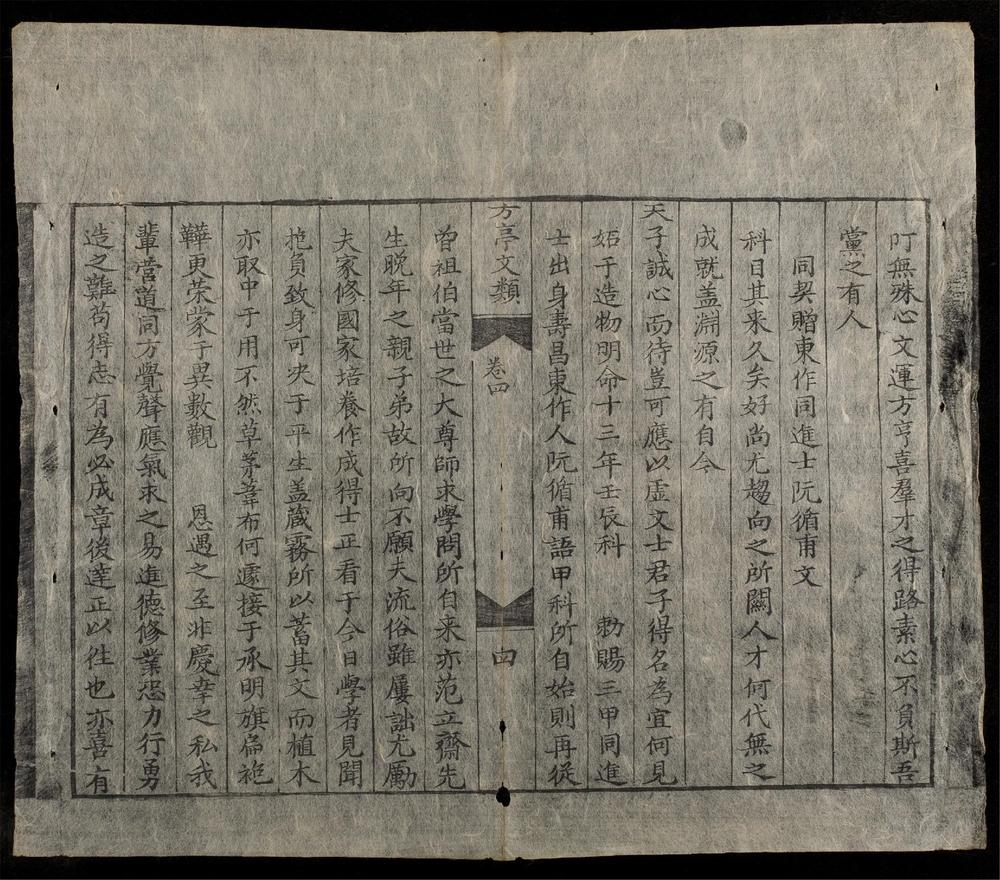 叮無殊心文運方亨喜羣才之得路素心不負斯吾
黨之有人
同契贈東作同進士阮循甫文
科目其来久矣好尚尤趨向之所關人才何代無之
成就盖淵源之有自今
天子誠心而待豈可應以虚文士君子得名為宜何見
妬于造物明命十三年壬辰科 勅賜三甲同進
士出身壽昌東作人阮循甫語甲科所自始則再從
方亭文類 卷四 四
曾祖伯當世之大尊師求學問所自来亦范立齋先
生晚年之親子弟故所向不願夫流俗雖屢詘尤勵
夫家修國家培養作成得士正看于今日學者見聞
抱負致身可决于平生盖蔵霧所以蓄其文而植木
亦取中于用不然草茅韋布何遽接于承明旗扁袍
鞾更荣蒙于異數觀 恩遇之至非慶幸之私我
輩營道同方覺聲應氣求之易進德修業恐力行勇
造之難苟得志有為必成章後達正以性也亦喜有